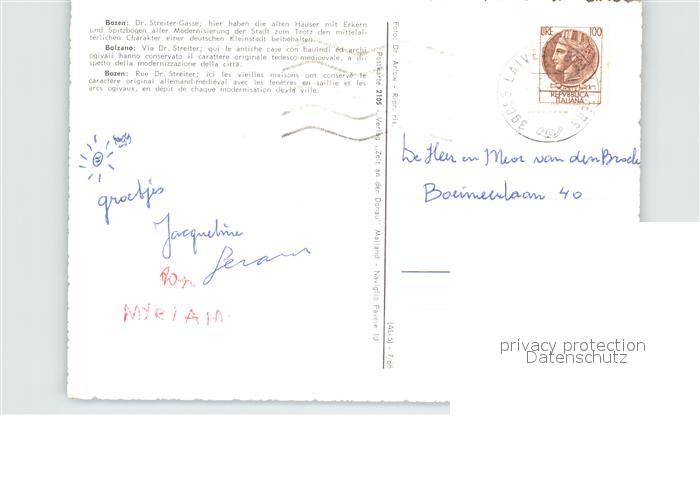 Bozen: Dr. Streiter-Gasse; hier haben die alten Häuser mit Erkern
und Spitzbögen aller Modernisierung der Stadt zum Trotz den mittelal-
terlichen Charakter einer deutschen Kleinstadt beibehalten.
Bolzano: Via Dr. Streiter; qui le antiche case con bauindi ed archi
ogivali hanno conservato il carattere originale tedesco-medioevale, a di-
spetto della modernizzazione della città.
Bozen: Rue Dr. Streiter; ici les vieilles maisons ont conservé le
caractère original allemand-médiéval avec les fenêtres en saillie et les
arcs ogivaux, en dépit de chaque modernisation de la ville.
groetjes
Jacqueline
MYRIAM
Postkarte 2105 - Verlag „Zeit an der Donau" Mailand - Naviglio Pavese 10
Foto: Dr. Arlow - Ripr. ris.
(AL-S) - 7/68
LIRE 100
REPVBBLICA
ITALIANA
39055 LAIVES
De Heer en Mevr van den Broek
Boeimeerlaan 40
privacy protection
Datenschutz